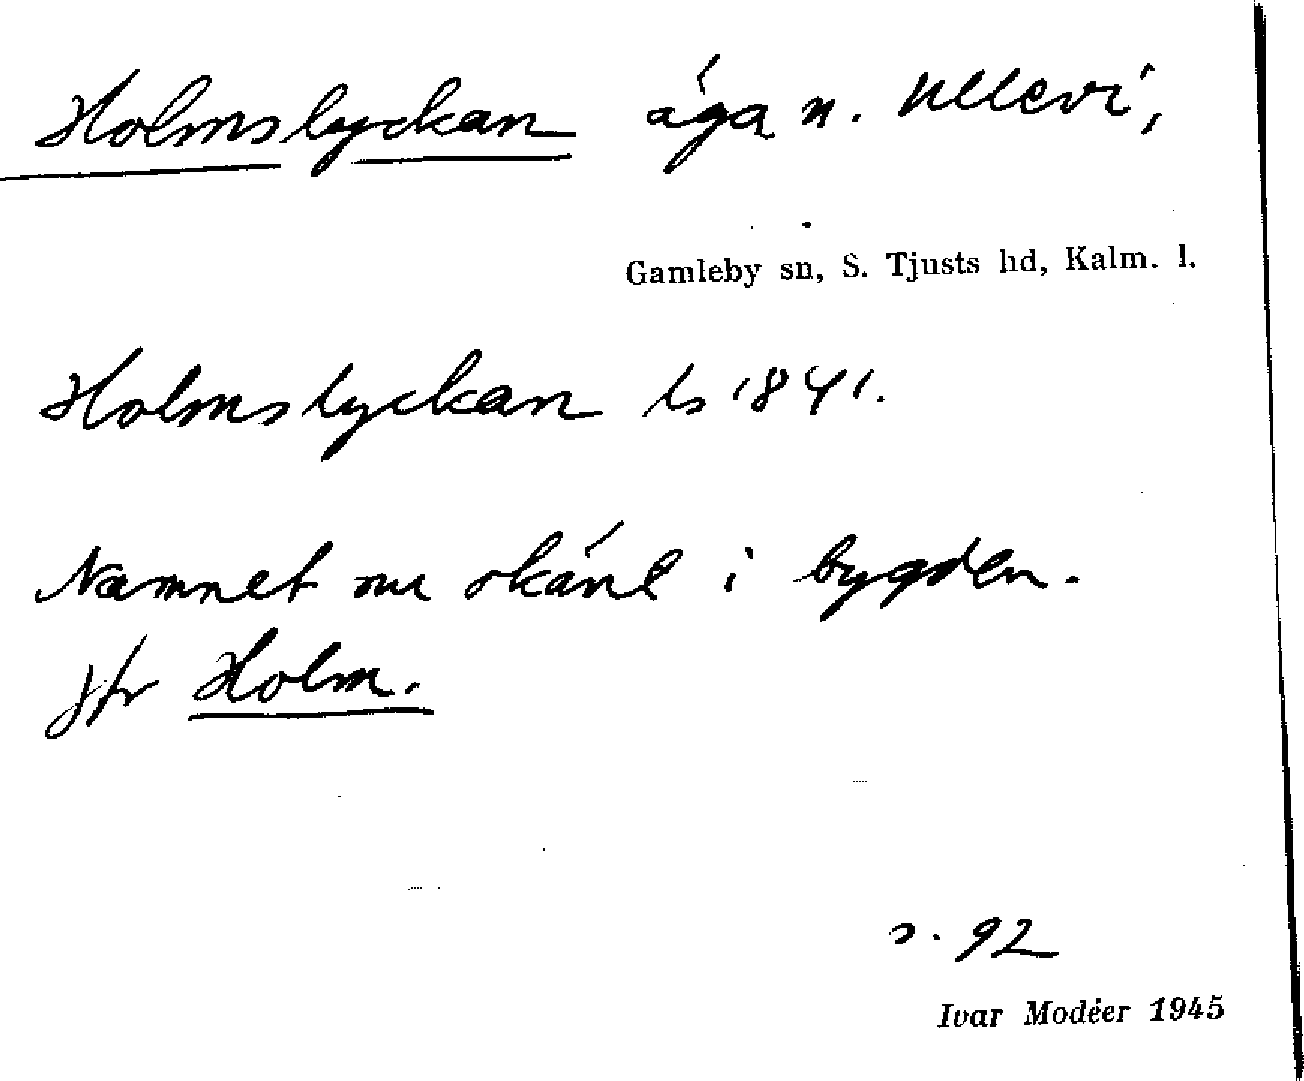 Holmslyckan äga u. Ullevi,
Gamleby sn, S. Tjusts hd, Kalm. l.
Holmslyckan ls 1841.
Namnet nu okänt i bygden.
Jfr Holm.
s. 92
Ivar Modéer 1945